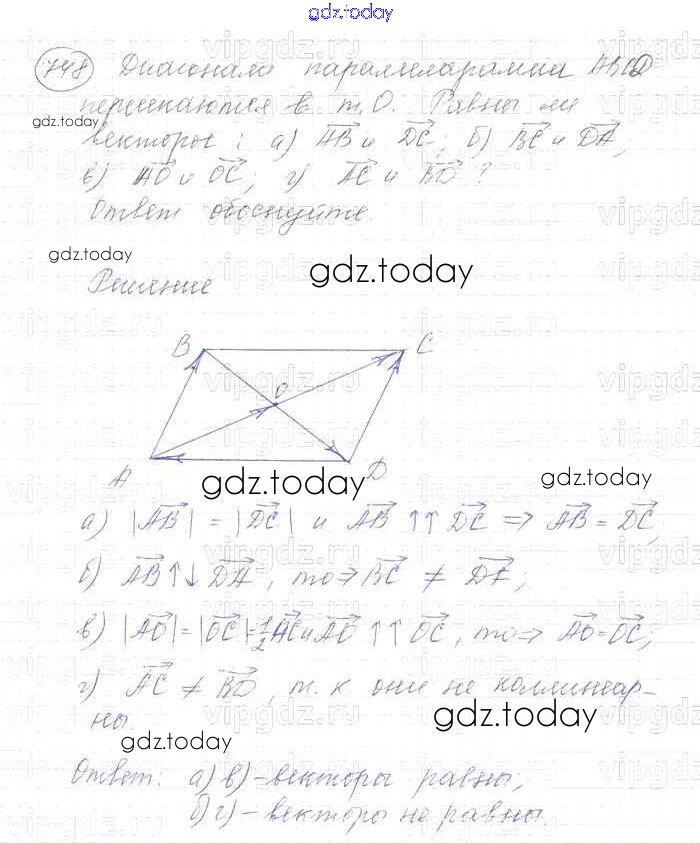 gdz.today
748 Диагонали параллелограмма ABCD
пересекаются в т. O. Равны ли
gdz.today
векторы: а) AB и DC; б) BC и DA;
в) AO и OC; г) AC и BD?
Ответ обоснуйте.
gdz.today
Решение
gdz.today
B C
O
A D
gdz.today
gdz.today
а) |AB| = |DC| и AB ↑↑ DC => AB = DC;
б) AB ↑↓ DA, то => BC ≠ DA;
в) |AO| = |OC| = 1/2 AC и AO ↑↑ OC, то => AO = OC;
г) AC ≠ BD, т. к. они не коллинеар-
ны.
gdz.today
gdz.today
Ответ: а) в) - векторы равны;
б) г) - векторы не равны.